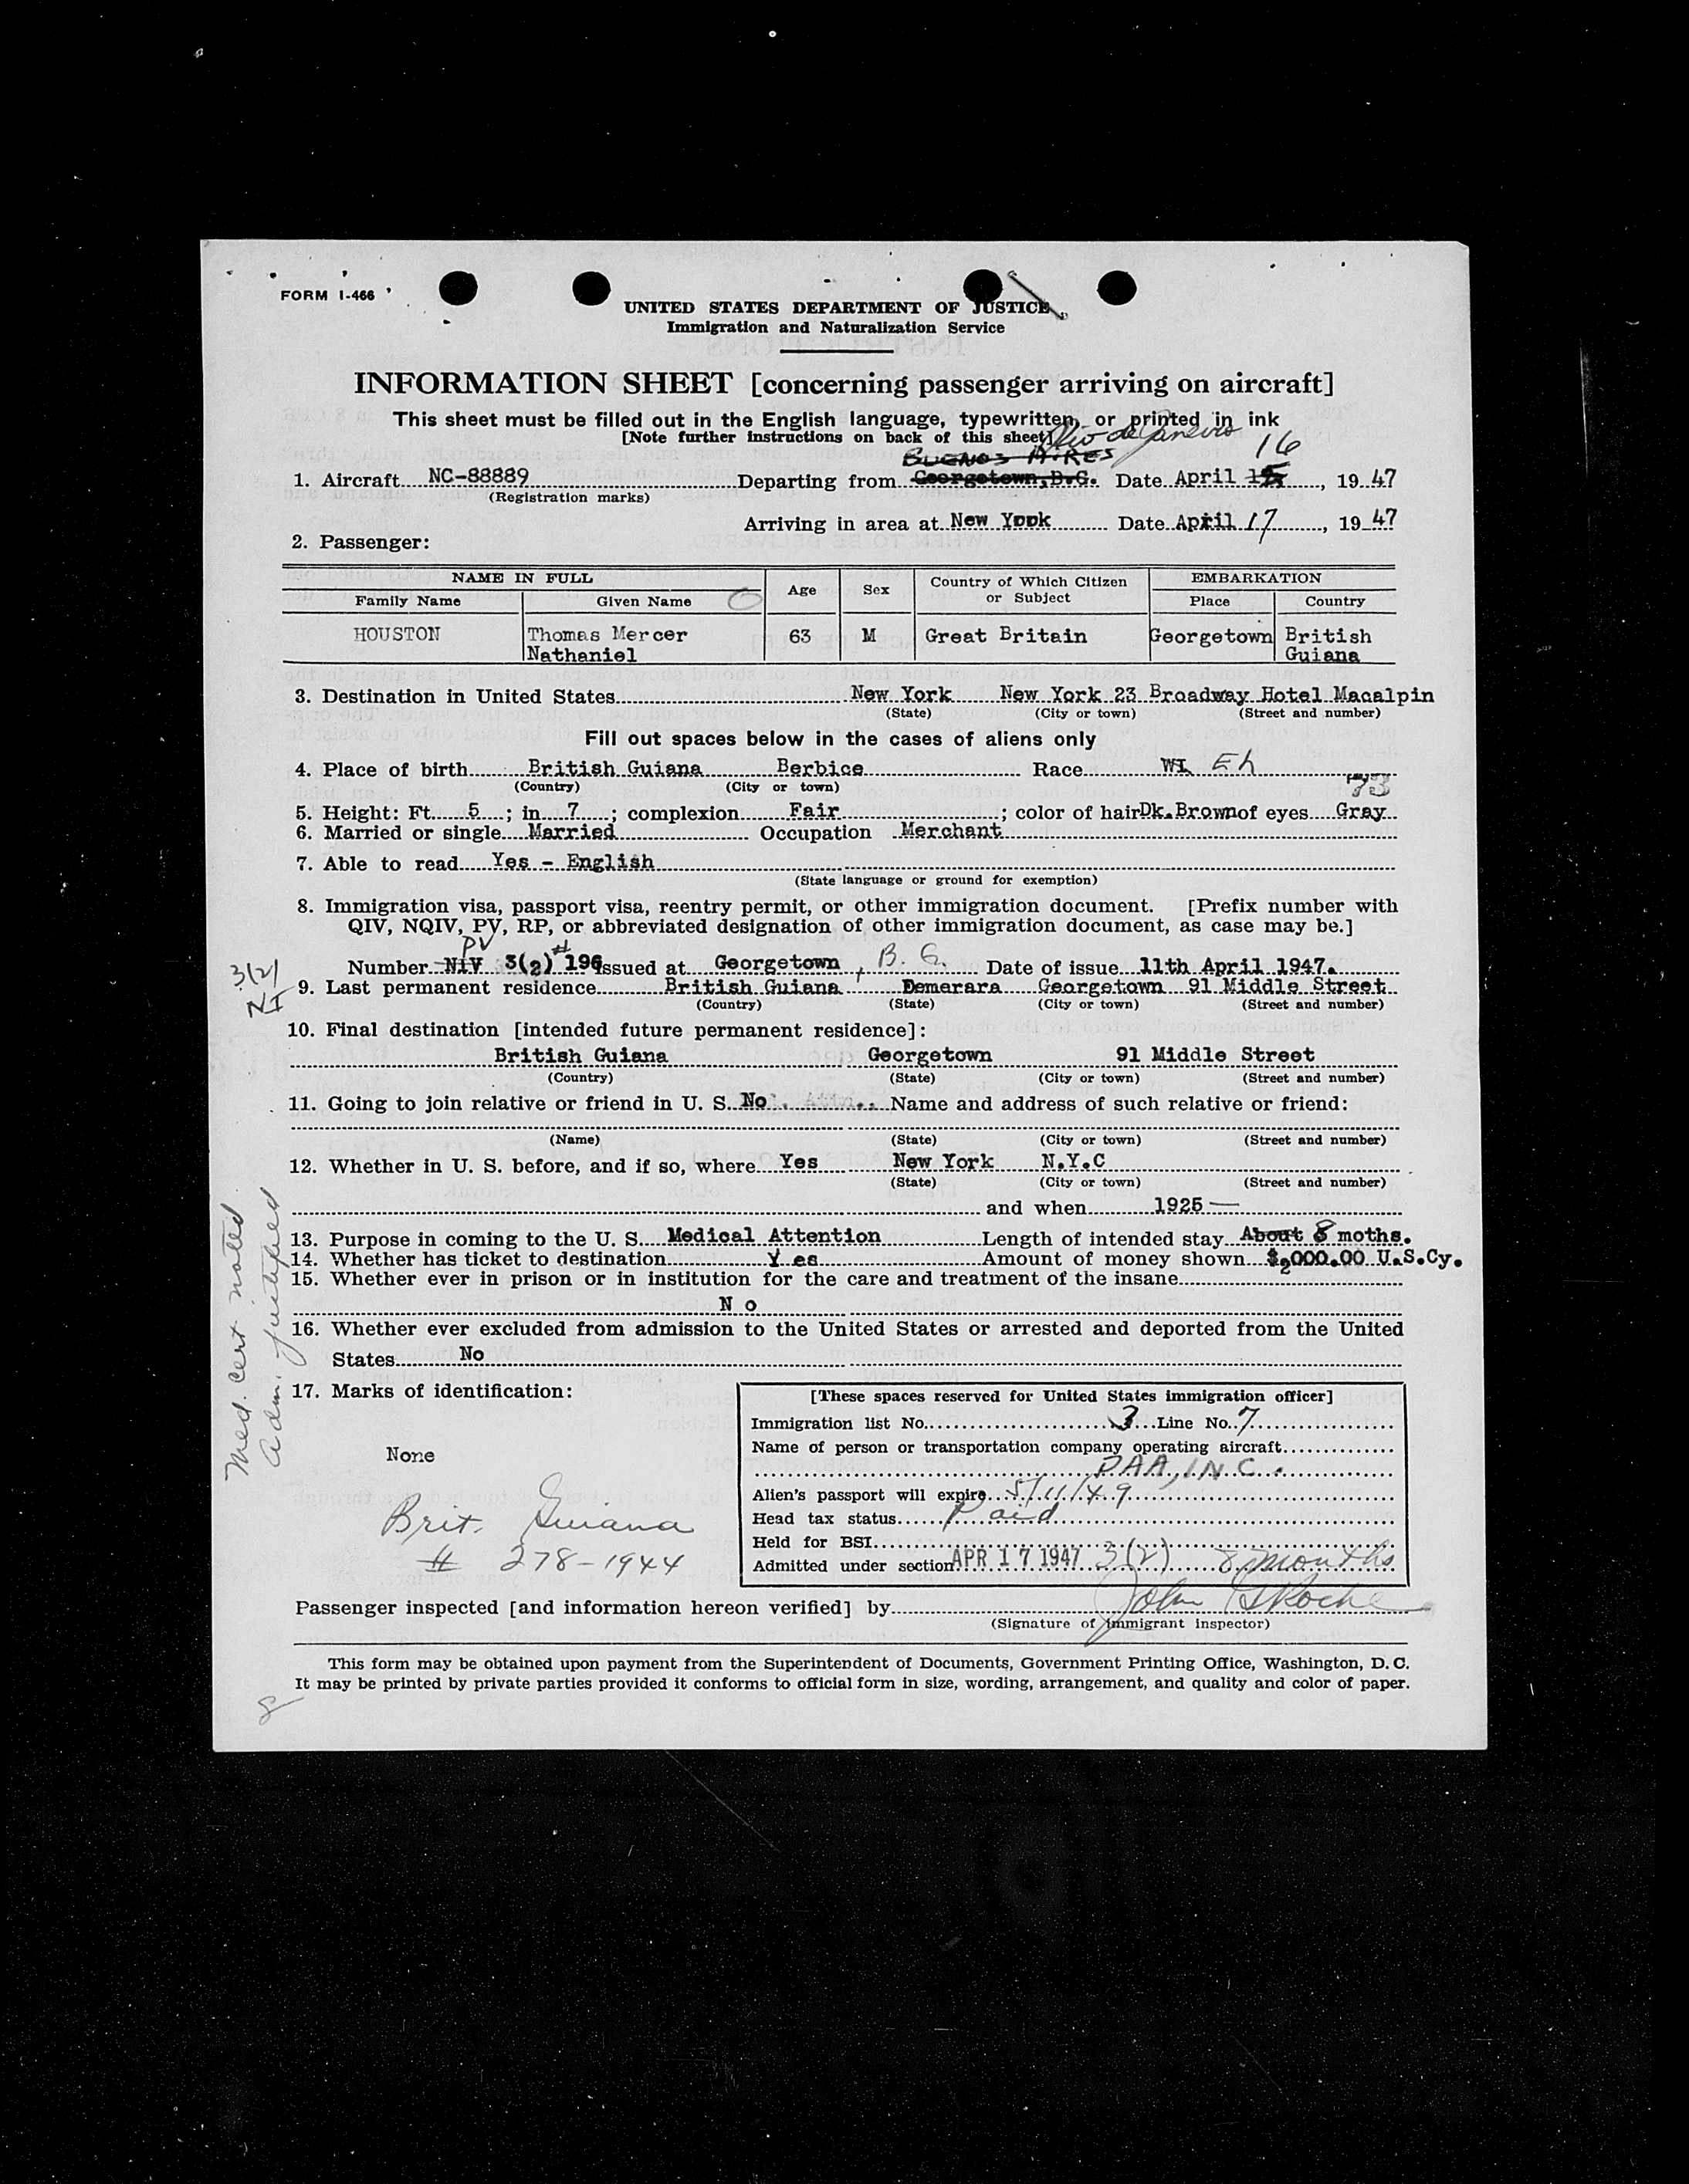 FORM I-466
UNITED STATES DEPARTMENT OF JUSTICE
Immigration and Naturalization Service
INFORMATION SHEET [concerning passenger arriving on aircraft]
This sheet must be filled out in the English language, typewritten, or printed in ink
[Note further instructions on back of this sheet]
Rio de Janeiro
BUENOS AIRES 16
1. Aircraft NC-88889 Departing from Georgetown, B.G. Date April 15, 1947
(Registration marks)
Arriving in area at New Yopk Date April 17, 1947
2. Passenger:
NAME IN FULL Age Sex Country of Which Citizen or Subject EMBARKATION
Family Name Given Name Place Country
HOUSTON Thomas Mercer 63 M Great Britain Georgetown British
Nathaniel Guiana
3. Destination in United States New York New York 23 Broadway Hotel Macalpin
(State) (City or town) (Street and number)
Fill out spaces below in the cases of aliens only
4. Place of birth British Guiana Berbice Race WI Eh
(Country) (City or town)
73
5. Height: Ft. 5; in 7; complexion Fair; color of hair Dk.Brown of eyes Gray
6. Married or single Married Occupation Merchant
7. Able to read Yes - English
(State language or ground for exemption)
8. Immigration visa, passport visa, reentry permit, or other immigration document. [Prefix number with
QIV, NQIV, PV, RP, or abbreviated designation of other immigration document, as case may be.]
PV #
3(2)
NI
Number NIV 3(2) 196 issued at Georgetown, B. G. Date of issue 11th April 1947.
9. Last permanent residence British Guiana Demerara Georgetown 91 Middle Street
(Country) (State) (City or town) (Street and number)
10. Final destination [intended future permanent residence]:
British Guiana Georgetown 91 Middle Street
(Country) (State) (City or town) (Street and number)
11. Going to join relative or friend in U. S. No Name and address of such relative or friend:
(Name) (State) (City or town) (Street and number)
12. Whether in U. S. before, and if so, where Yes New York N.Y.C
(State) (City or town) (Street and number)
and when 1925 —
13. Purpose in coming to the U. S. Medical Attention Length of intended stay About 8 moths.
14. Whether has ticket to destination Y es Amount of money shown $2000.00 U.S.Cy.
15. Whether ever in prison or in institution for the care and treatment of the insane
N o
16. Whether ever excluded from admission to the United States or arrested and deported from the United
States No
Med. cert noted
Adm. justified
17. Marks of identification:
None
Brit. Guiana
# 278-1944
[These spaces reserved for United States immigration officer]
Immigration list No. 3 Line No. 7
Name of person or transportation company operating aircraft
PAA, INC.
Alien's passport will expire 5/11/49
Head tax status Paid
Held for BSI
Admitted under section APR 17 1947 3(2) 8 months
Passenger inspected [and information hereon verified] by John G Roche
(Signature of immigrant inspector)
This form may be obtained upon payment from the Superintendent of Documents, Government Printing Office, Washington, D. C.
It may be printed by private parties provided it conforms to official form in size, wording, arrangement, and quality and color of paper.
8